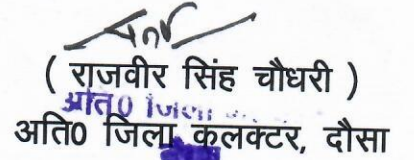 ( राजवीर सिंह चौधरी )
अति0 जिला
अति0 जिला कलक्टर, दौसा